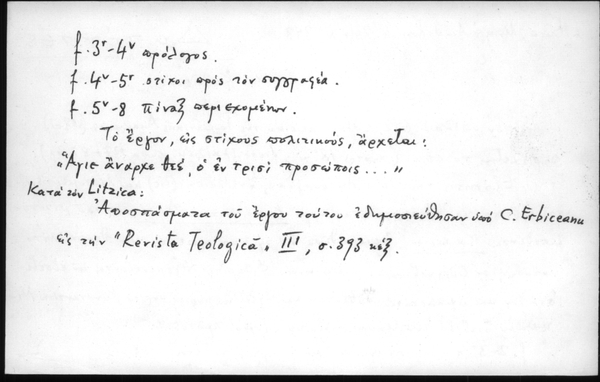 f. 3ʳ-4ᵛ πρόλογος.
f. 4ᵛ-5ʳ στίχοι πρὸς τὸν συγγραφέα.
f. 5ᵛ-8 πίναξ περιεχομένων.
Τὸ ἔργον, εἰς στίχους πολιτικούς, ἄρχεται:
"Ἅγιε ἄναρχε θεέ, ὁ ἐν τρισὶ προσώποις..."
Κατὰ τὸν Litzica:
Ἀποσπάσματα τοῦ ἔργου τούτου ἐδημοσιεύθησαν ὑπὸ C. Erbiceanu
εἰς τὴν "Revista Teologică" III, σ. 393 κἑξ.